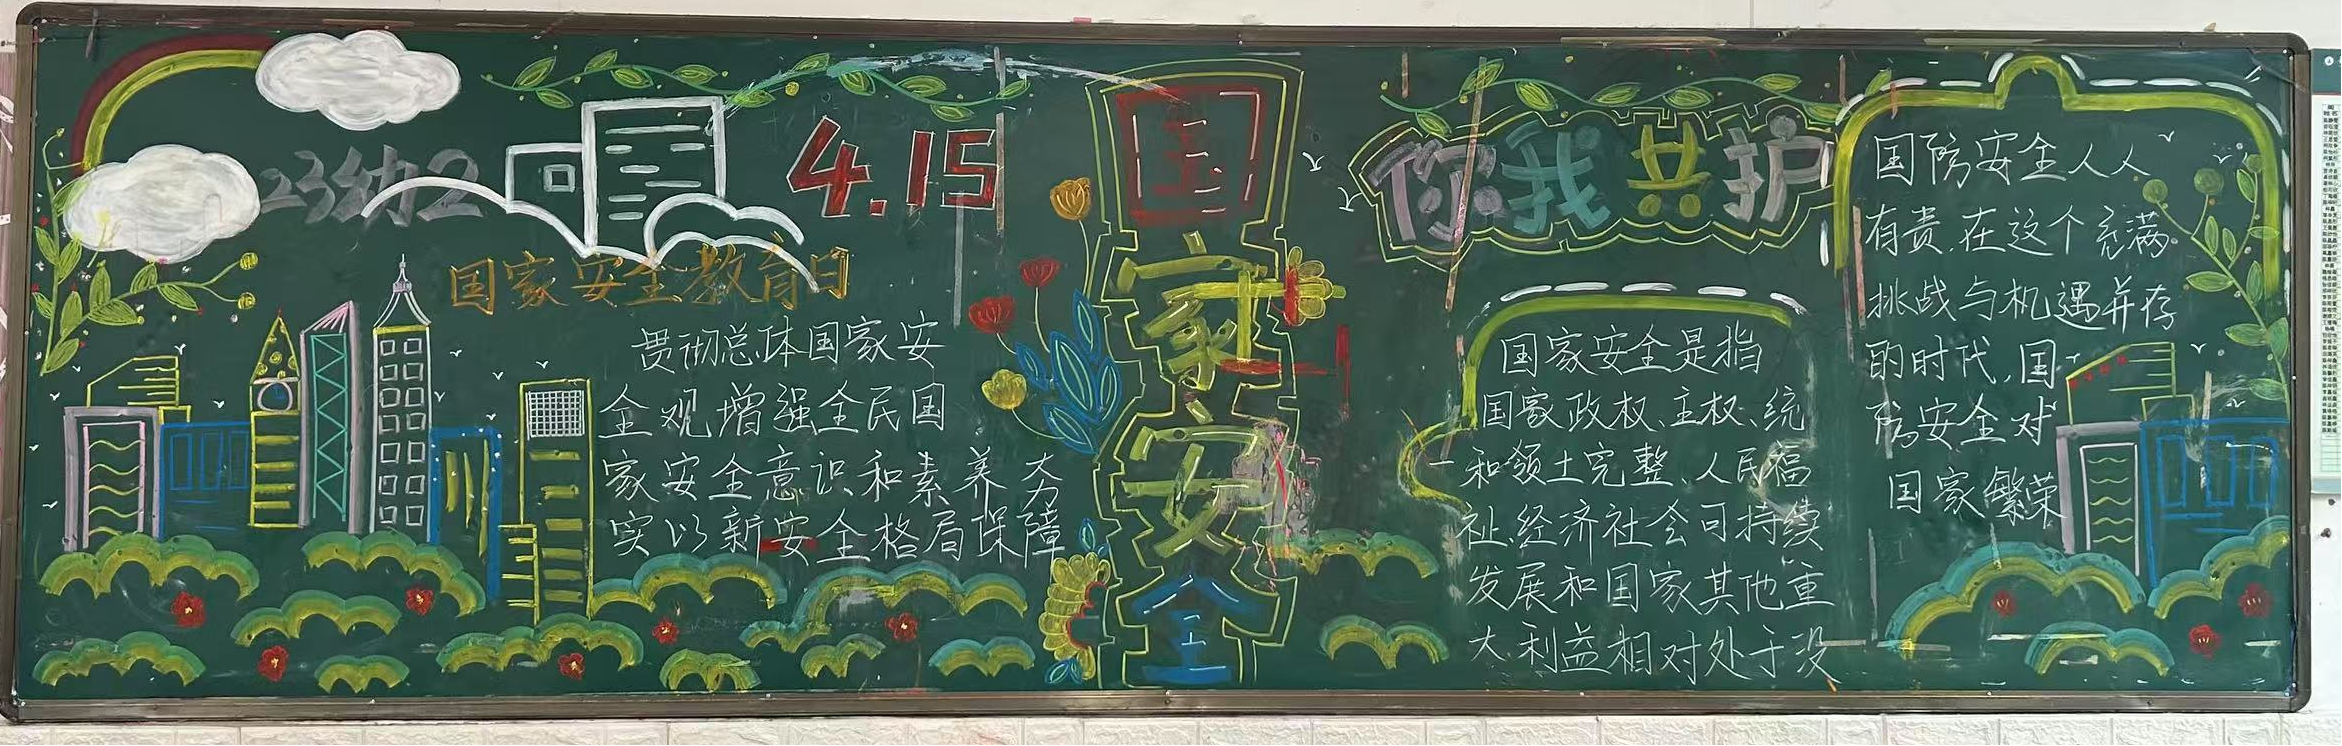 23幼2
4.15
国家安全教育日
贯彻总体国家安
全观增强全民国
家安全意识和素养大力
实以新安全格局保障
国家安全
你我共护
国家安全是指
国家政权、主权、统
一和领土完整、人民福
祉、经济社会可持续
发展和国家其他重
大利益相对处于没
国防安全人人
有责,在这个充满
挑战与机遇并存
的时代,国
防安全对
国家繁荣